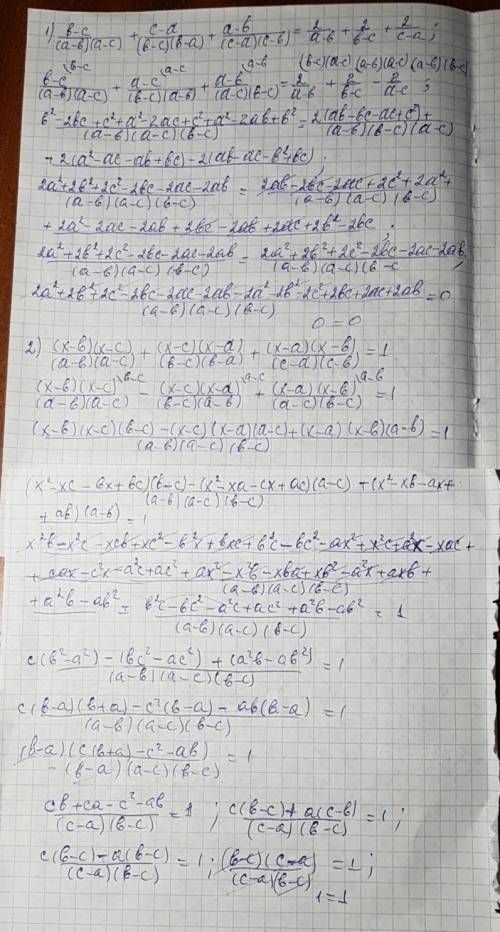 1) (b-c)/((a-b)(a-c)) + (c-a)/((b-c)(b-a)) + (a-b)/((c-a)(c-b)) = 2/(a-b) + 2/(b-c) + 2/(c-a) ;
(b-c)\b-c/((a-b)(a-c)) + (a-c)\a-c/((b-c)(a-b)) + (a-b)\a-b/((a-c)(b-c)) = 2\(b-c)(a-c)/(a-b) + 2\(a-b)(a-c)/(b-c) - 2\(a-b)(b-c)/(a-c) ;
(b²-2bc+c²+a²-2ac+c²+a²-2ab+b²)/((a-b)(a-c)(b-c)) = (2(ab-bc-ac+c²)+)/((a-b)(b-c)(a-c))
+ 2(a²-ac-ab+bc)-2(ab-ac-b²+bc) .
(2a²+2b²+2c²-2bc-2ac-2ab)/((a-b)(a-c)(b-c)) = (2ab-2bc-2ac+2c²+2a²+)/((a-b)(a-c)(b-c))
+ 2a²-2ac-2ab+2bc-2ab+2ac+2b²-2bc ;
(2a²+2b²+2c²-2bc-2ac-2ab)/((a-b)(a-c)(b-c)) = (2a²+2b²+2c²-2bc-2ac-2ab)/((a-b)(a-c)(b-c ;
(2a²+2b²+2c²-2bc-2ac-2ab-2a²-2b²-2c²+2bc+2ac+2ab)/((a-b)(a-c)(b-c)) = 0
0 = 0
2) (x-b)(x-c)/((a-b)(a-c)) + (x-c)(x-a)/((b-c)(b-a)) + (x-a)(x-b)/((c-a)(c-b)) = 1
(x-b)(x-c)\b-c/((a-b)(a-c)) - (x-c)(x-a)\a-c/((b-c)(a-b)) + (x-a)(x-b)\a-b/((a-c)(b-c)) = 1
((x-b)(x-c)(b-c)-(x-c)(x-a)(a-c)+(x-a)(x-b)(a-b))/((a-b)(a-c)(b-c)) = 1
((x²-xc-bx+bc)(b-c)-(x²-xa-cx+ac)(a-c)+(x²-xb-ax+)/((a-b)(a-c)(b-c))
+ab)(a-b) = 1
x²b-x²c-xcb+xc²-b²x+bxc+b²c-bc²-ax²+x²c+a²x-xac+
+cax-c²x-a²c+ac²+ax²-x²b-xba+xb²-a²x+axb+/((a-b)(a-c)(b-c))
+a²b-ab² = (b²c-bc²-a²c+ac²+a²b-ab²)/((a-b)(a-c)(b-c)) = 1
(c(b²-a²)-(bc²-ac²)+(a²b-ab²))/((a-b)(a-c)(b-c)) = 1
(c(b-a)(b+a)-c²(b-a)-ab(b-a))/((a-b)(a-c)(b-c)) = 1
((b-a)(c(b+a)-c²-ab))/(-(b-a)(a-c)(b-c)) = 1
(cb+ca-c²-ab)/((c-a)(b-c)) = 1 ; (c(b-c)+a(c-b))/((c-a)(b-c)) = 1 ;
(c(b-c)-a(b-c))/((c-a)(b-c)) = 1 ; ((b-c)(c-a))/((c-a)(b-c)) = 1 ;
1 = 1